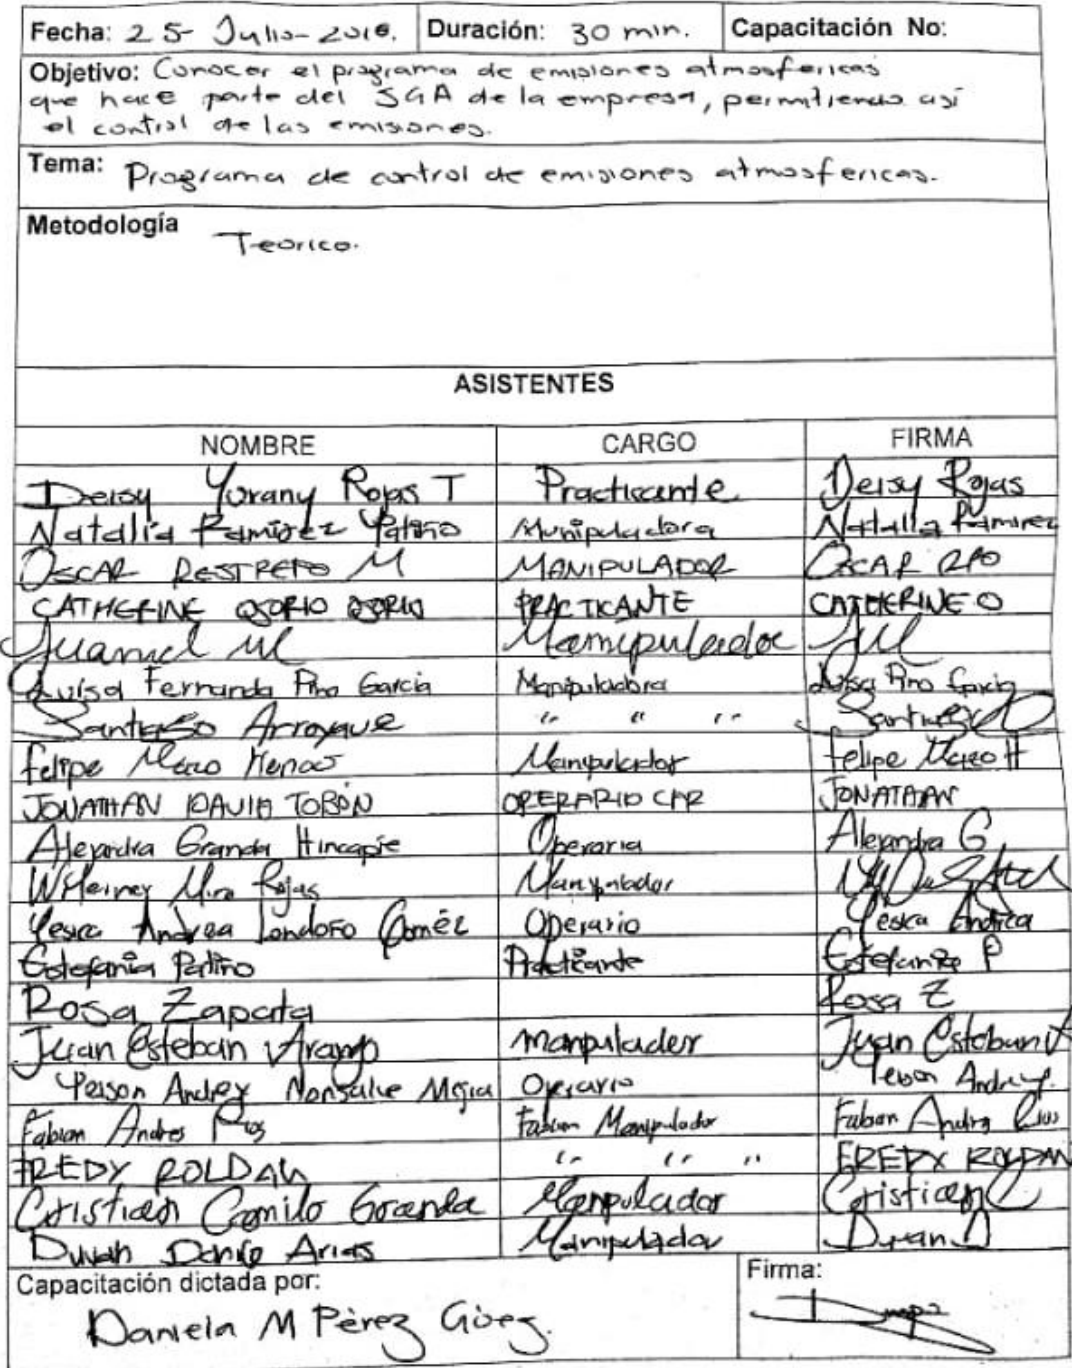 Fecha: 25- Julio-2016. Duración: 30 min. Capacitación No:
Objetivo: Conocer el programa de emisiones atmosfericas
que hace parte del SGA de la empresa, permitiendo así
el control de las emisiones.
Tema: Programa de control de emisiones atmosfericas.
Metodología Teorico.
ASISTENTES
NOMBRE CARGO FIRMA
Deisy Yurany Rojas T Practicante Deisy Rojas
Natalia Ramirez Patiño Manipuladora Natalia Ramirez
OSCAR RESTREPO M MANIPULADOR OSCAR RPO
CATHERINE OSORIO OSORIO PRACTICANTE CATHERINE O
Juan M Manipulador JM
Luisa Fernanda Pino Garcia Manipuladora Luisa Pino Garcia
Santiago Arroyave " " " Santiago
Felipe Mazo Henao Manipulador Felipe Mazo H
JONATHAN DAVID TOBÓN OPERARIO CAR JONATAAN
Alejandra Granda Hincapie Operaria Alejandra G
Wileiner Mira Rojas Manipulador
Yesica Andrea Londoño Goméz Operario Yesica Andrea
Estefania Patiño Practicante Estefania P
Rosa Zapata Rosa Z
Juan Esteban Arango manipulador Juan Esteban A
Yeison Andrey Monsalve Mejia Operario Yeison Andrey.
Fabian Andres Rios Fabian Manipulador Fabian Andres Rios
FREDY ROLDAN " " " FREDY ROLDAN
Cristian Camilo Granda Manipulador Cristian C
Duvan Danilo Arias Manipulador Duvan D
Capacitación dictada por: Firma:
Daniela M Pérez Gómez.